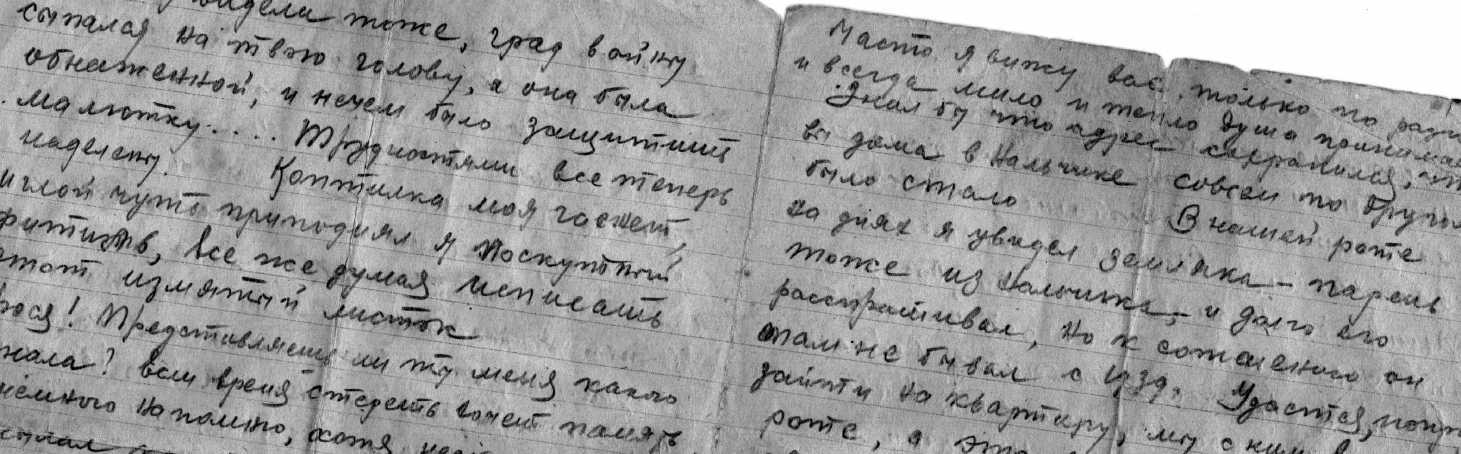 видели тоже, град войну
сыпался на твою голову, а она была
обнаженной, и нечем было защитить
малютку.... Трудностями все теперь
наделены. Коптилка моя гаснет,
иглой чуть приподнял я лоскутный
фитиль, все же думая исписать
этот измятый листок
Представляешь ли ты меня какого
знала? Всем время стереть хочет память
немного напомню, хотя
Часто я вижу вас, только по
и всегда мило и тепло душа принимает
Знал бы что адрес сохранился, что
вы дома в Нальчике совсем по другому
было стало В нашей роте
на днях я увидел земляка - парень
тоже из Нальчика, и долго его
расспрашивал, но к сожалению он
там не бывал с
зайти на квартиру, мы с ним в
роте, а это